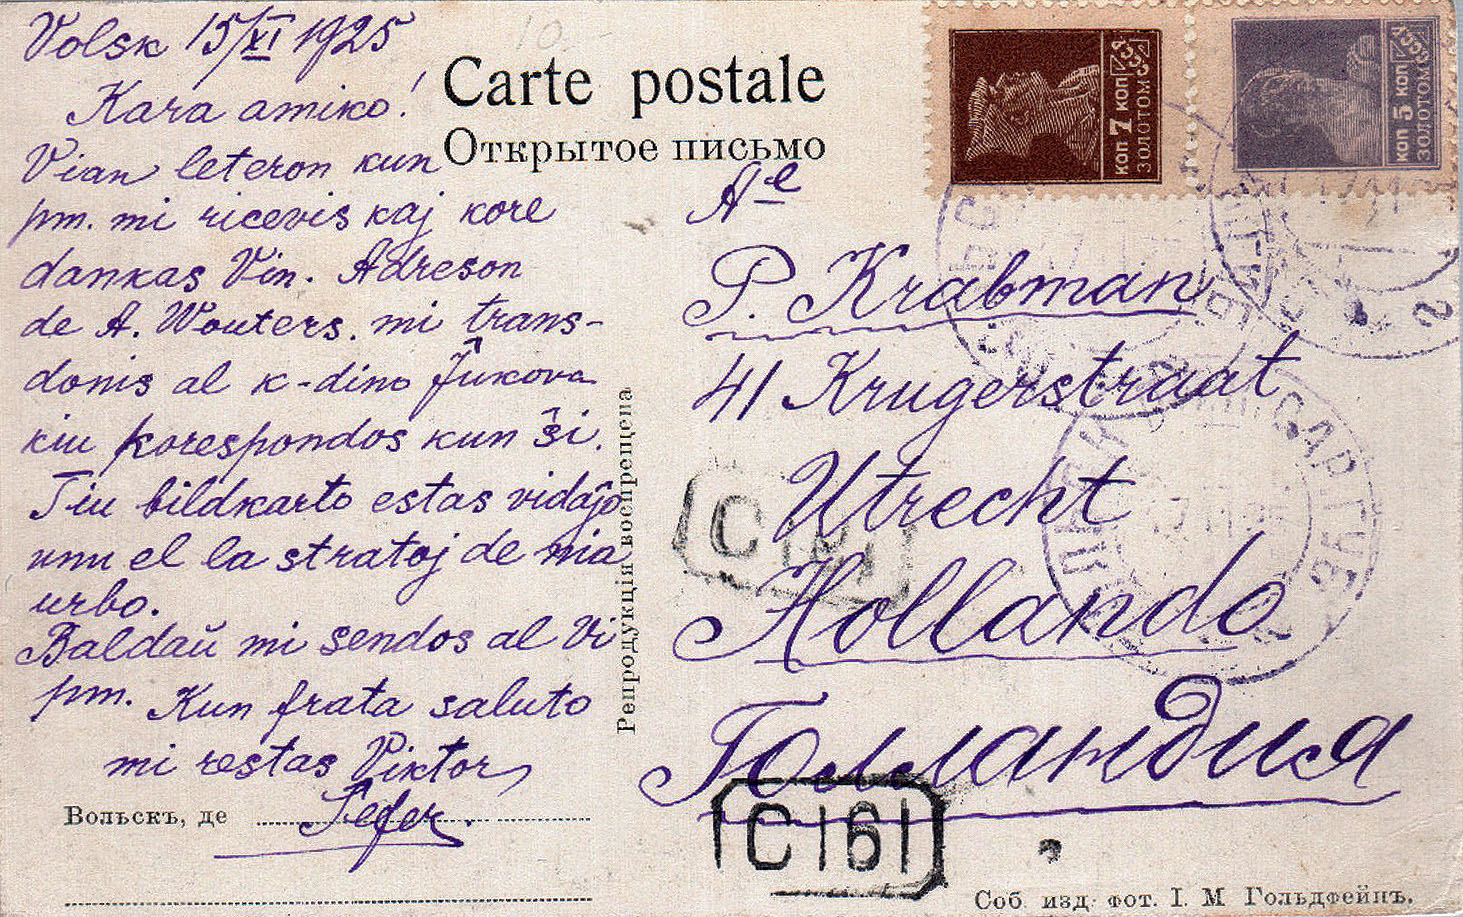 Volsk 15/XI 1925
Kara amiko!
Vian leteron kun
pm. mi ricevis kaj kore
dankas Vin. Adreson
de A. Wouters. mi trans-
donis al k-dino Ĵukova
kiu korespondos kun ŝi.
Tiu bildkarto estas vidaĵo
unu el la stratoj de mia
urbo.
Baldaŭ mi sendos al Vi
pm. Kun frata saluto
mi restas Viktor
Fefer.
Вольскъ, де
Carte postale
Открытое письмо
коп 7 коп
золотом
коп 5 коп
золотом
P. Krabman
41 Krugerstraat
Utrecht
Hollando
Голландия
Репродукція воспрещена
C 161
Соб. изд. фот. І. М Гольдфейнъ.